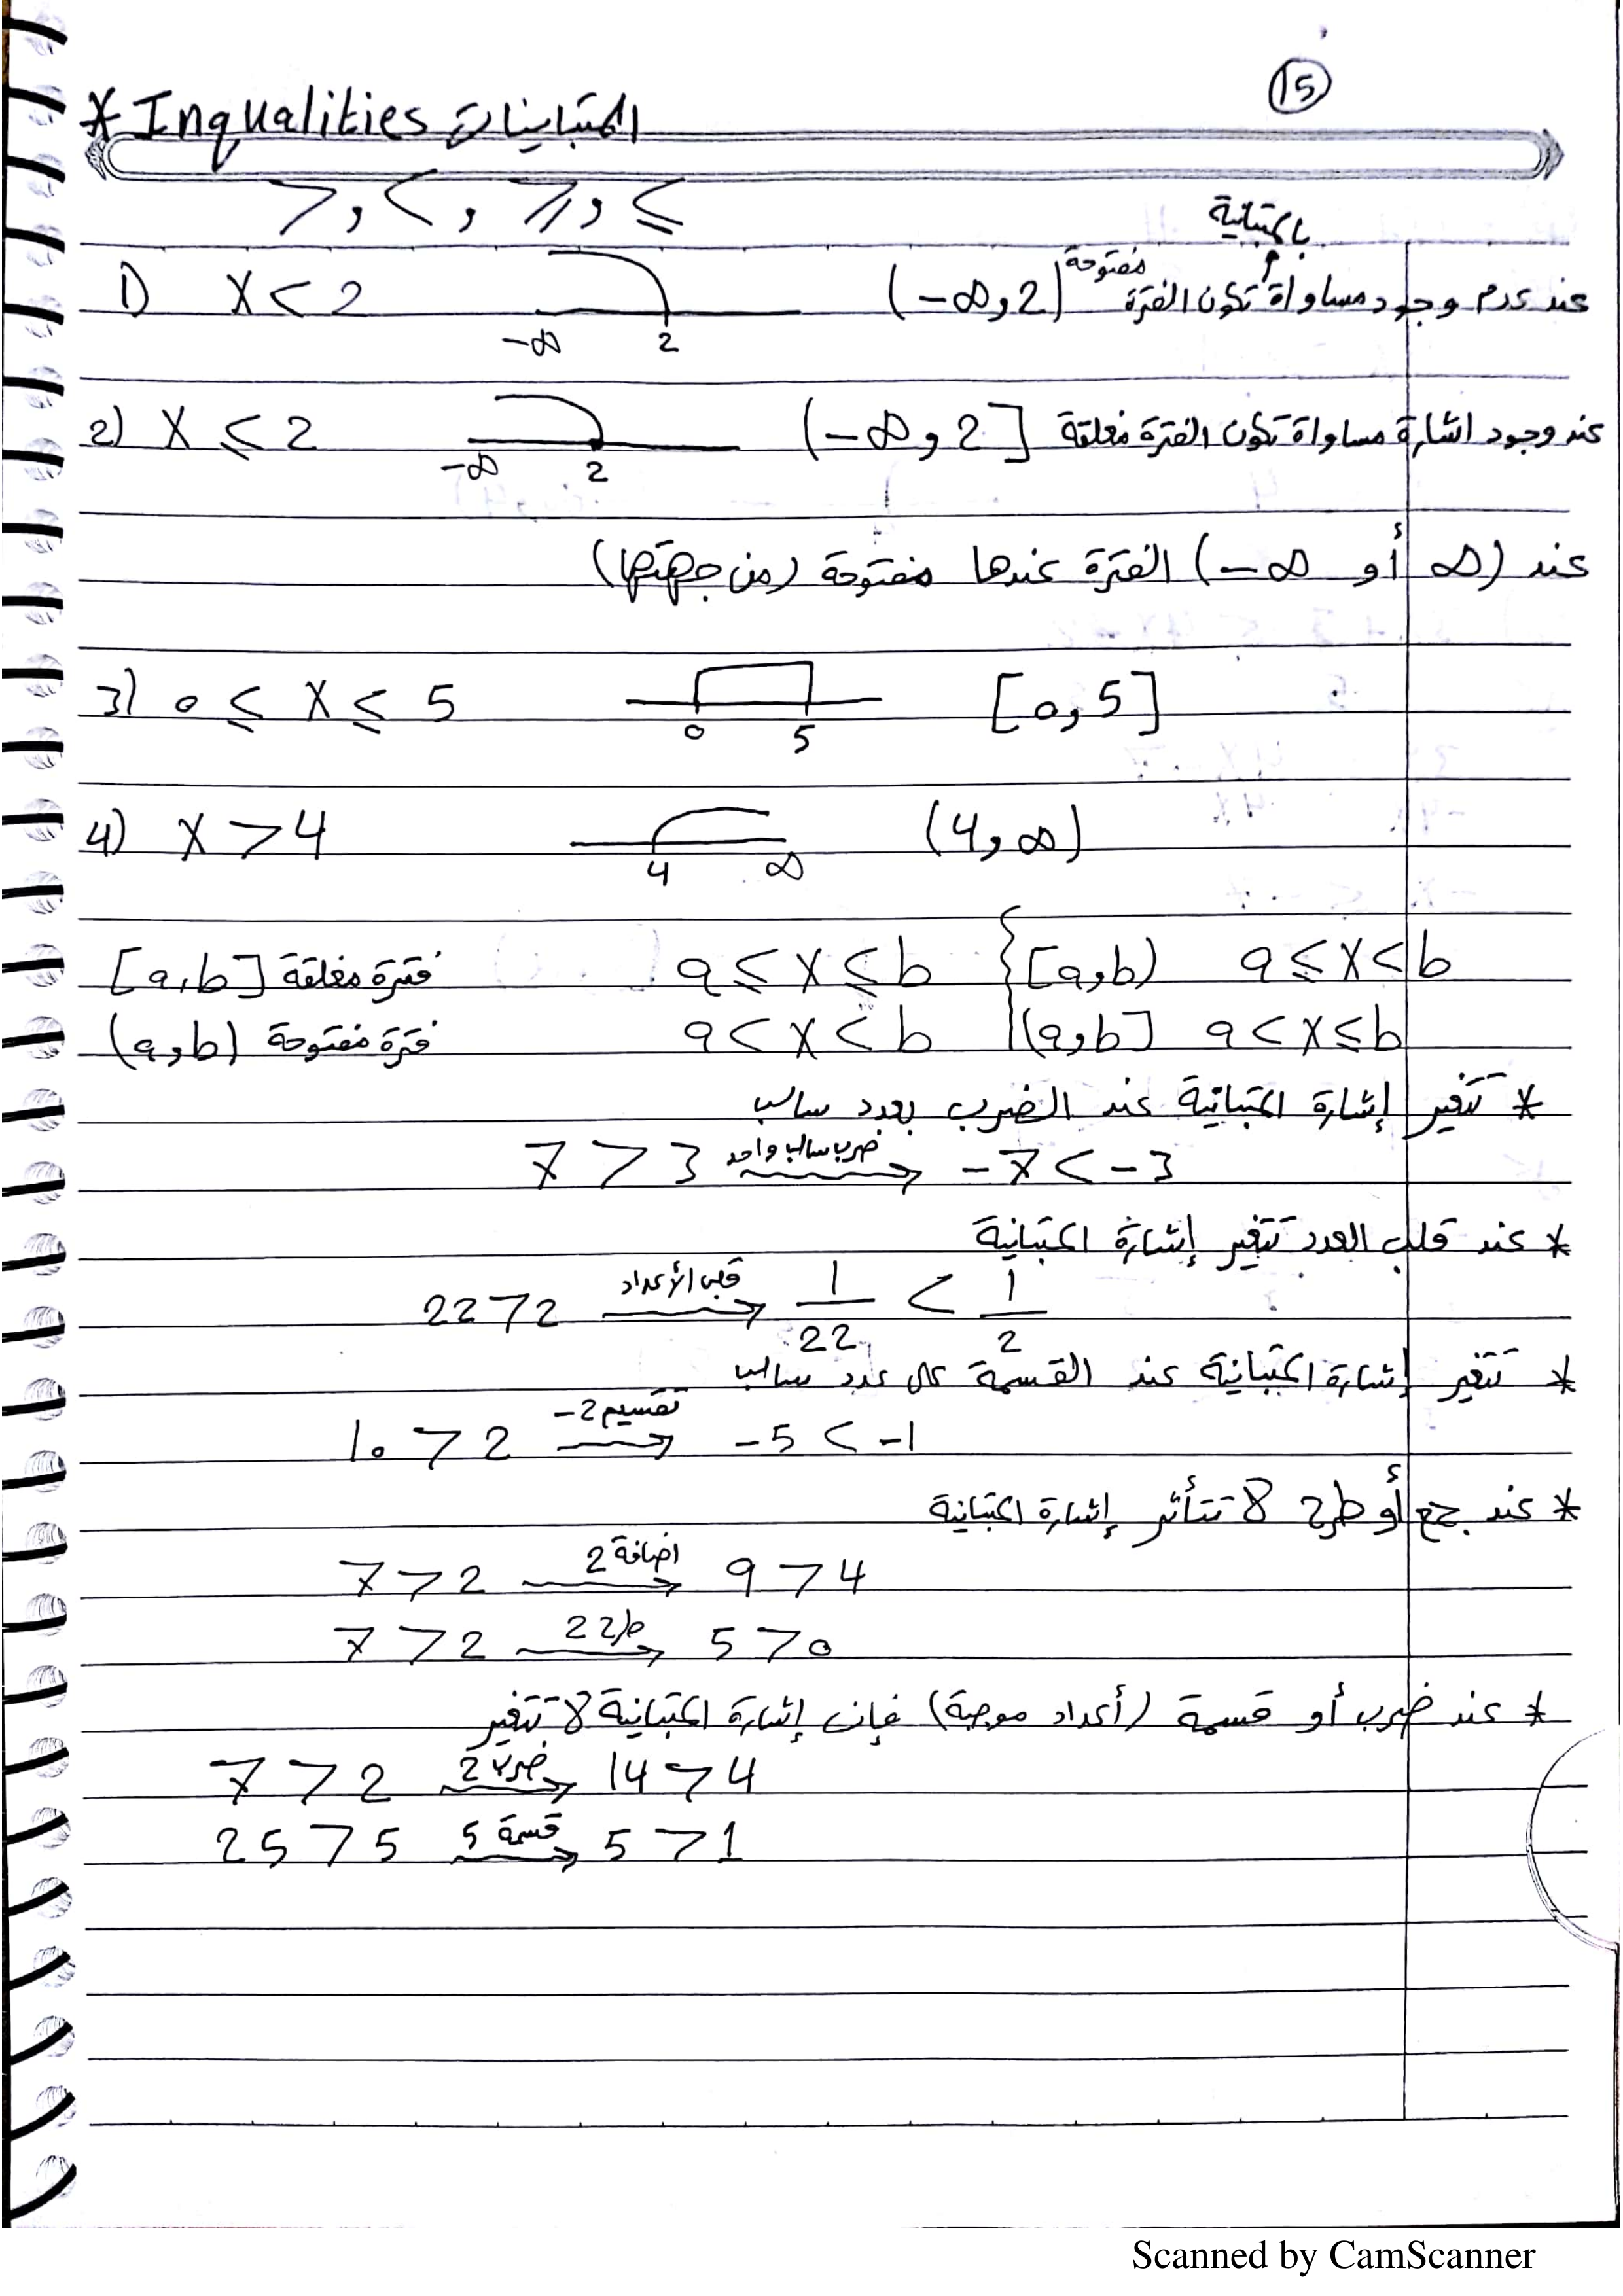 15
* Inqualities المتباينات
> , < , ≥ , ≤
بالمتباينة
1) X < 2 -∞ 2 (-∞, 2) عند عدم وجود مساواة تكون الفترة مفتوحة
2) X ≤ 2 -∞ 2 (-∞, 2] عند وجود اشارة مساواة تكون الفترة مغلقة
عند (∞ أو ∞-) الفترة عندها مفتوحة (من جهتها)
3) 0 ≤ X ≤ 5 0 5 [0, 5]
4) X > 4 4 ∞ (4, ∞)
[a, b] فترة مغلقة a ≤ X ≤ b { [a, b) a ≤ X < b
(a, b) فترة مفتوحة a < X < b (a, b] a < X ≤ b
* تتغير إشارة المتباينة عند الضرب بعدد سالب
7 > 3 ضرب سالب واحد → -7 < -3
* عند قلب العدد تتغير إشارة المتباينة
22 > 2 قلب الأعداد → 1/22 < 1/2
* تتغير إشارة المتباينة عند القسمة على عدد سالب
10 > 2 تقسيم 2- → -5 < -1
* عند جمع أو طرح لا تتأثر إشارة المتباينة
7 > 2 اضافة 2 → 9 > 4
7 > 2 طرح 2 → 5 > 0
* عند ضرب أو قسمة (أعداد موجبة) فإن إشارة المتباينة لا تتغير
7 > 2 ضرب 2 → 14 > 4
25 > 5 قسمة 5 → 5 > 1
Scanned by CamScanner